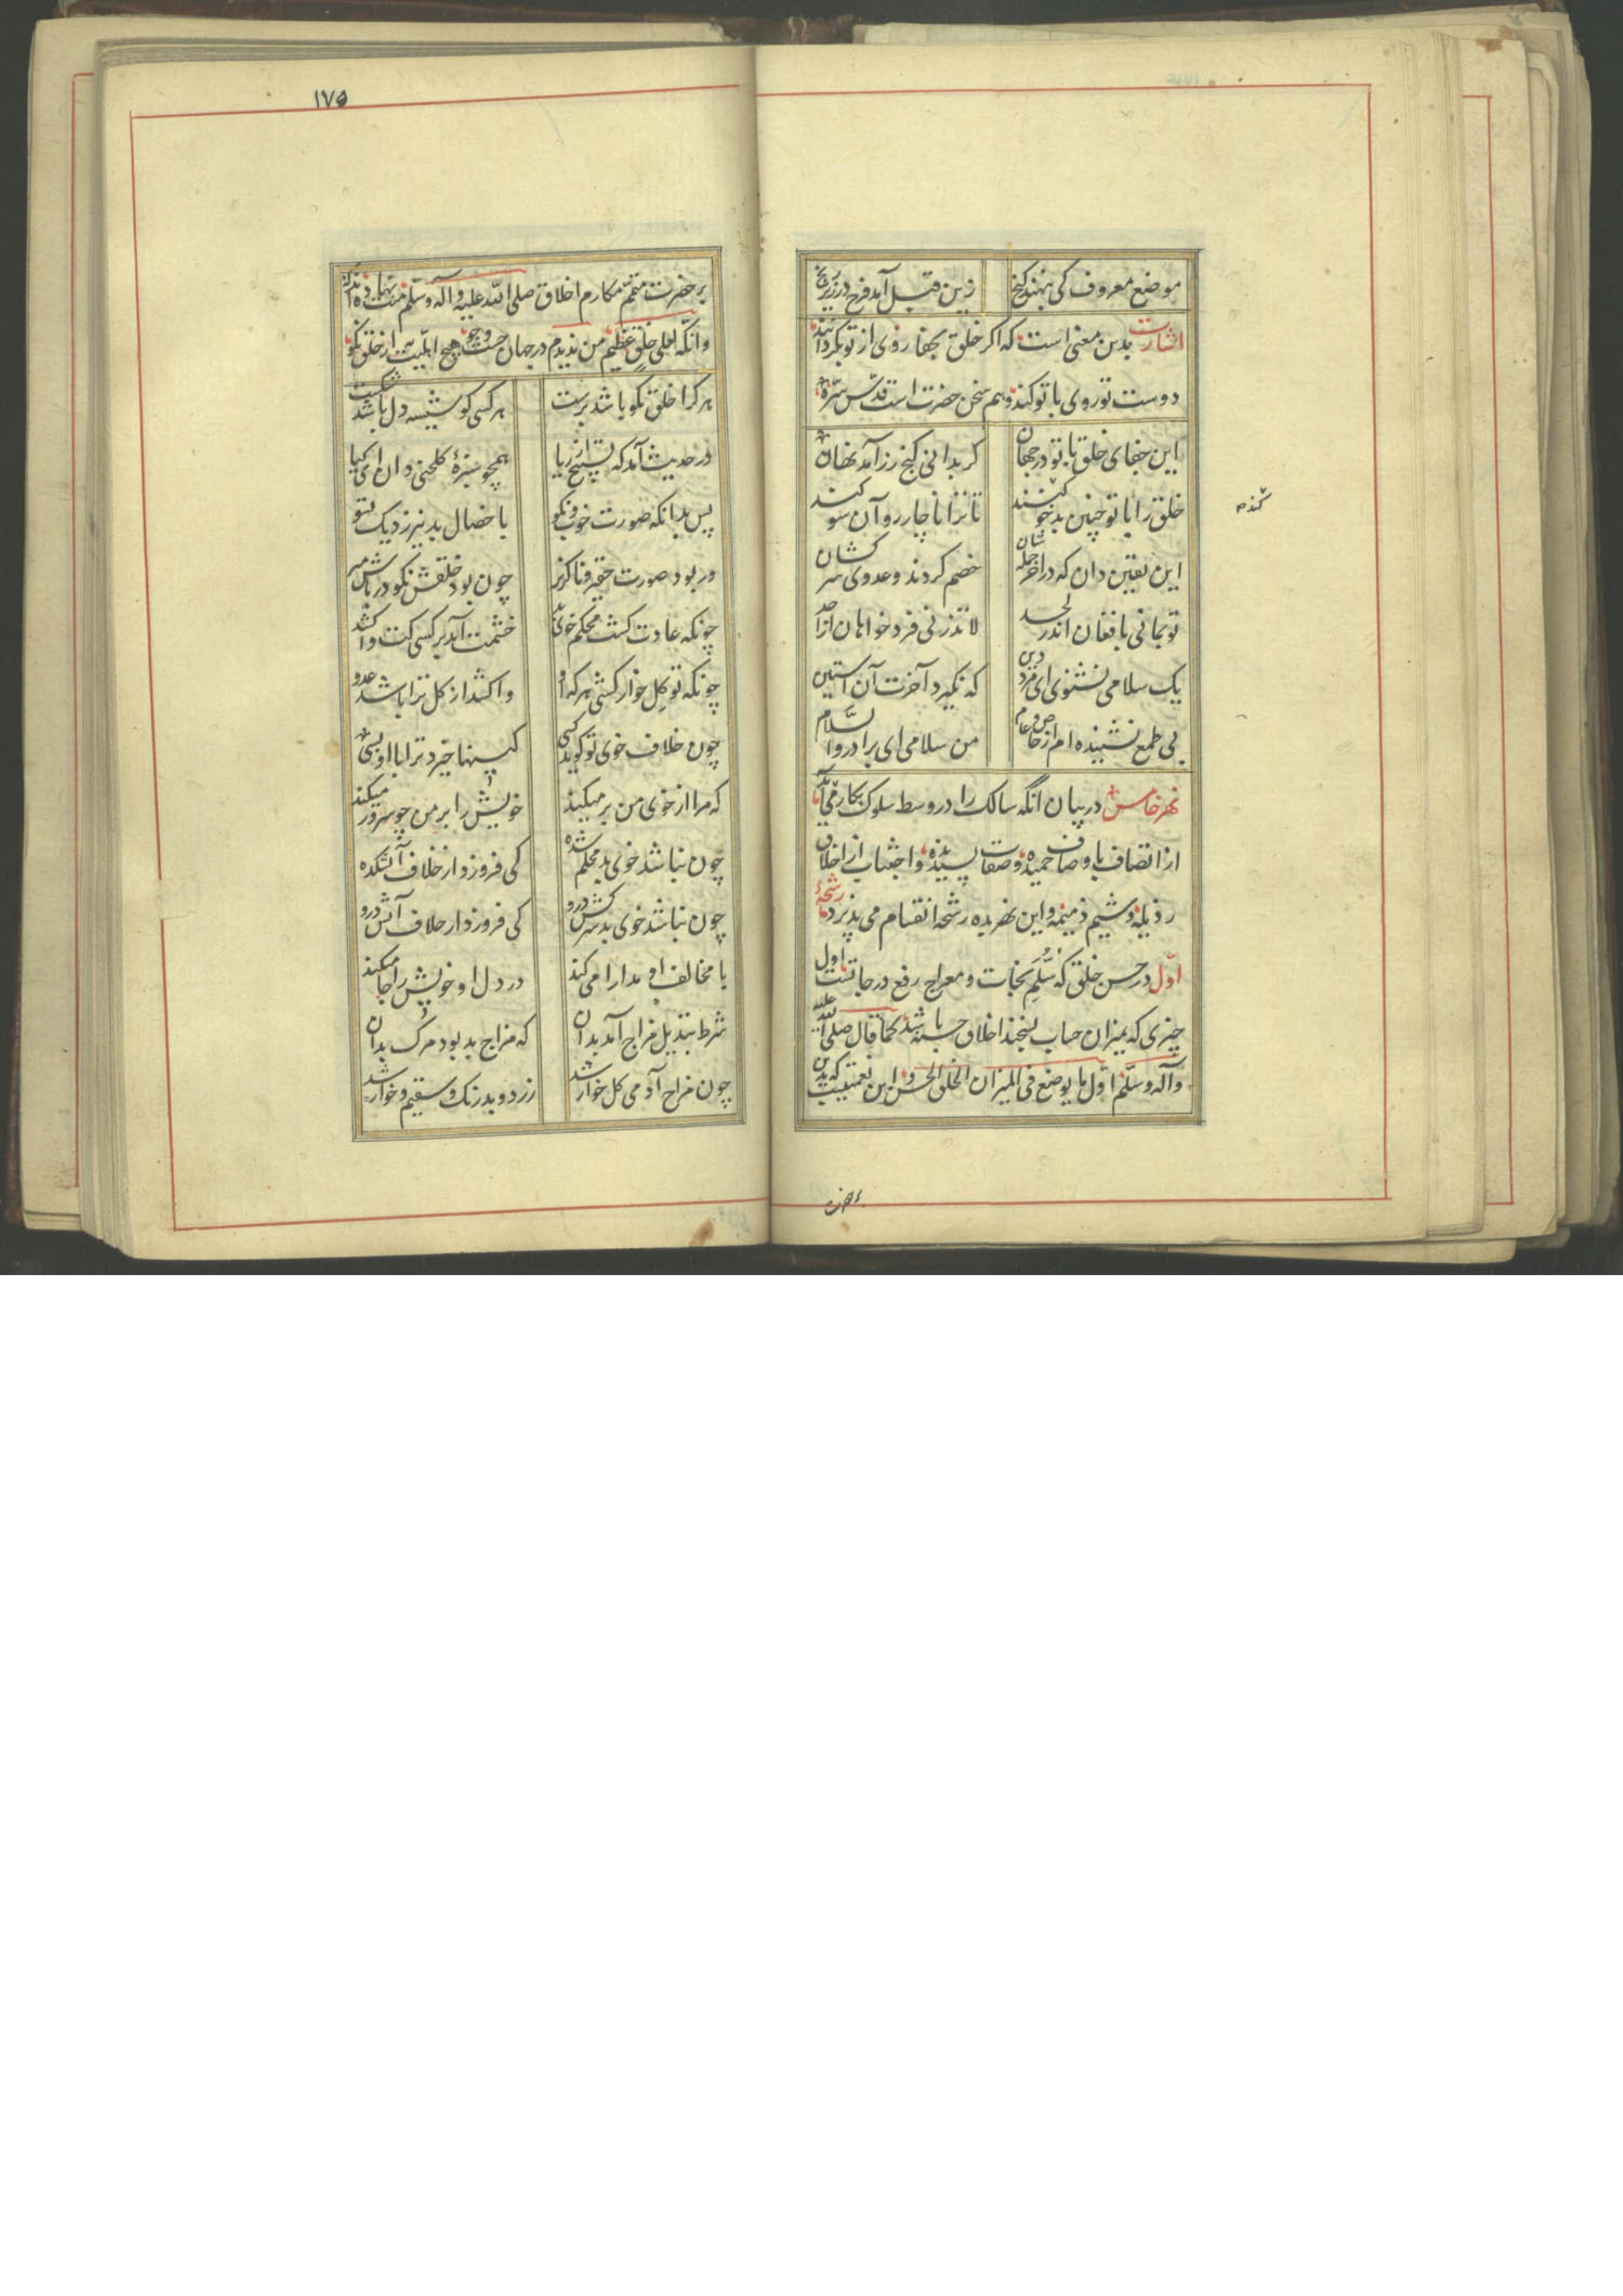 موضع معروف کی بنهند کنج
زین قبل آمد فرح در زیر رنج
اشارت بدین معنی است که اکر خلق بجفا روی از تو بکردانند
دوست تو روی با تو کند و هم سخن حضرت است قدّس سّره
این جفای خلق با تو در جهان
کر بدانی کنج زر آمد نهان
خلق را با تو چنین بدخو کنند
تا ترا ناچار رو آن سو کند
این یقین دان که در آخر جمله شان
خصم کردند و عدوی سر کشان
تو بمانی با فغان اندر لحد
لا تذرنی فرد خواهان از احد
یک سلامی نشنوی ای مرد دین
که نکیرد آخرت آن آستین
بی طمع نشنیده ام از خاص و عام
من سلامی ای برادر والسّلام
کنده
نهر خامس در بیان انکه سالک را در وسط سلوک بکار می آید
از اتصاف باوصاف حمیده و صفات پسندیده و اجتناب از اخلاق
رذیله و شیم ذمیمه و این نهر بده رشحه انقسام می پذیرد رشحهٔ
اوّل در حسن خلق که سُلَّمِ نجات و معراج رفع درجاتست اول
چیزی که بمیزان حساب بسنجند اخلاق حسنه باشد کما قال صلی الله علیه
وآله وسلّم اوّل ما یوضع فی المیزان الخلق الحسن و این نعمتیست که بدین
بر حضرت
۱۷۵
بر حضرت متمّم مکارم اخلاق صلی الله علیه و اله وسلم منت نهاده اند که
وانّکَ لعلی خلق عظیم من ندیدم در جهان جست و جو هیچ اهلیت به از خلق نکو
هر کرا خلق نکو باشد برست
هر کسی کو شیشه دل باشد شکست
در حدیث آمد که تسبیح از ریا
همچو سبزهٔ کلخن دان ای کیا
پس بدانکه صورت خوب و نکو
با خصال بد نیرزد یک تسو
ور بود صورت حقیر و ناکزیر
چون بود خلقش نکو در پاش میر
چونکه عادت کشت محکم خوی بد
خشمت آید بر کسی کت واکشد
چونکه تو کل خوار کشتی هر که او
واکشد از کل ترا باشد عدو
چون خلاف خوی تو کوید کسی
کینها خیزد ترا با او بسی
که مرا از خوی من بر میکند
خویش را بر من چو سرور میکند
چون نباشد خوی بد محکم شده
کی فروزد از خلاف آتشکده
چون نباشد خوی بد سرکش درو
کی فروزد از خلاف آتش درو
با مخالف او مدارا می کند
در دل او خویش را جا میکند
شرط تبدیل مزاج آمد بدان
که مزاج بد بود مرک بدان
چون مزاج آدمی کل خوار شد
زرد و بدرنک و سقیم و خوار شد